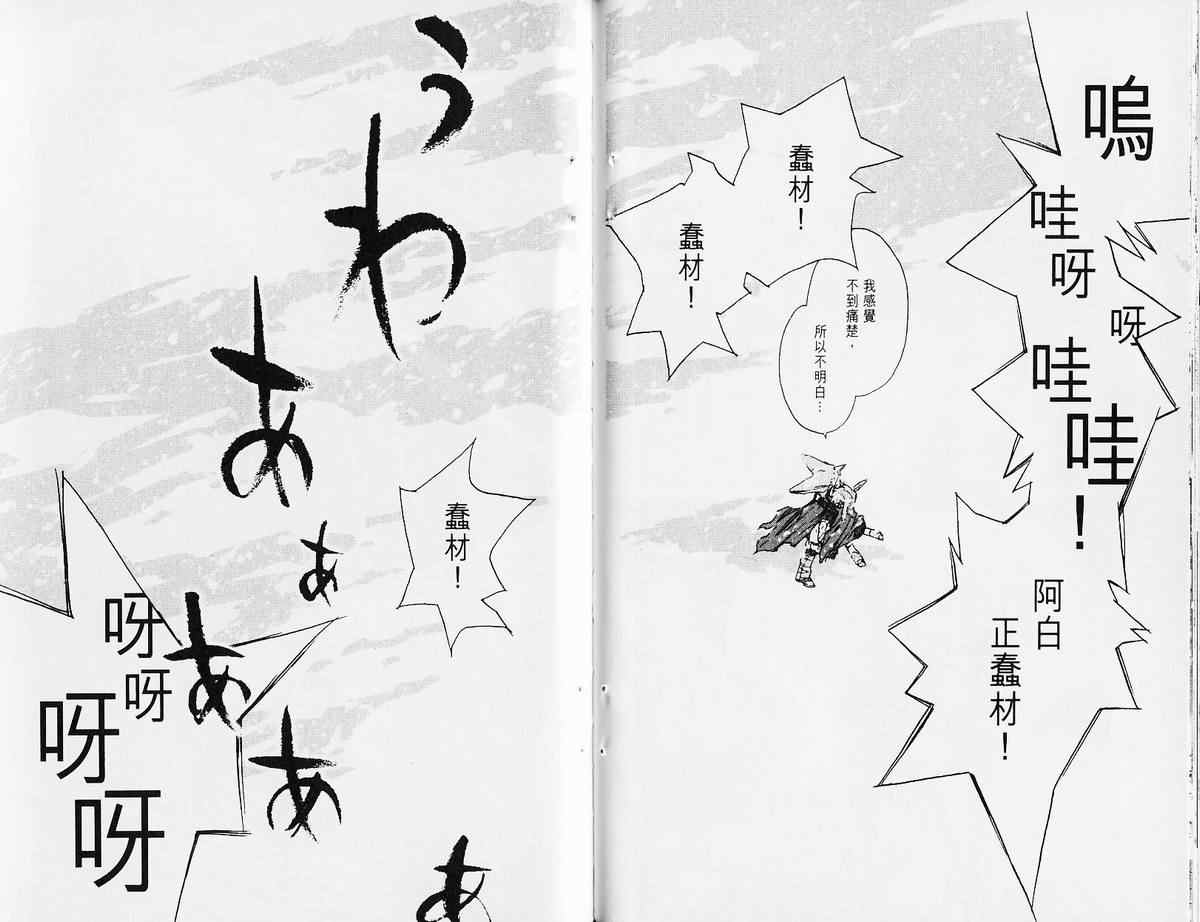 嗚
哇呀呀
哇
哇！
阿白
正蠢材！
蠢材！
蠢材！
我感覺
不到痛楚，
所以不明白…
蠢材！
うわああああ
あ
呀
呀
呀
呀